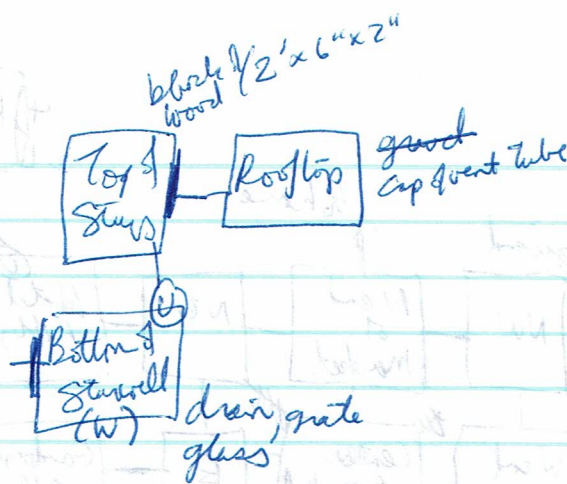 block of 1/2' x 6" x 2"
wood
Top of
Stairs
Rooftop
guard
cap of vent tube
U
Bottom of
Stairwell
(W)
drain, grate
glass